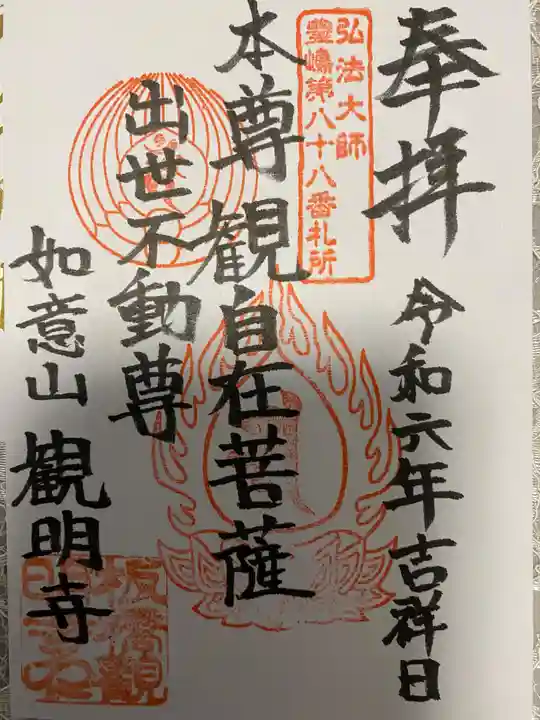 奉拝
令和六年吉祥日
弘法大師
豊嶋第八十八番札所
本尊観自在菩薩
出世不動尊
如意山観明寺